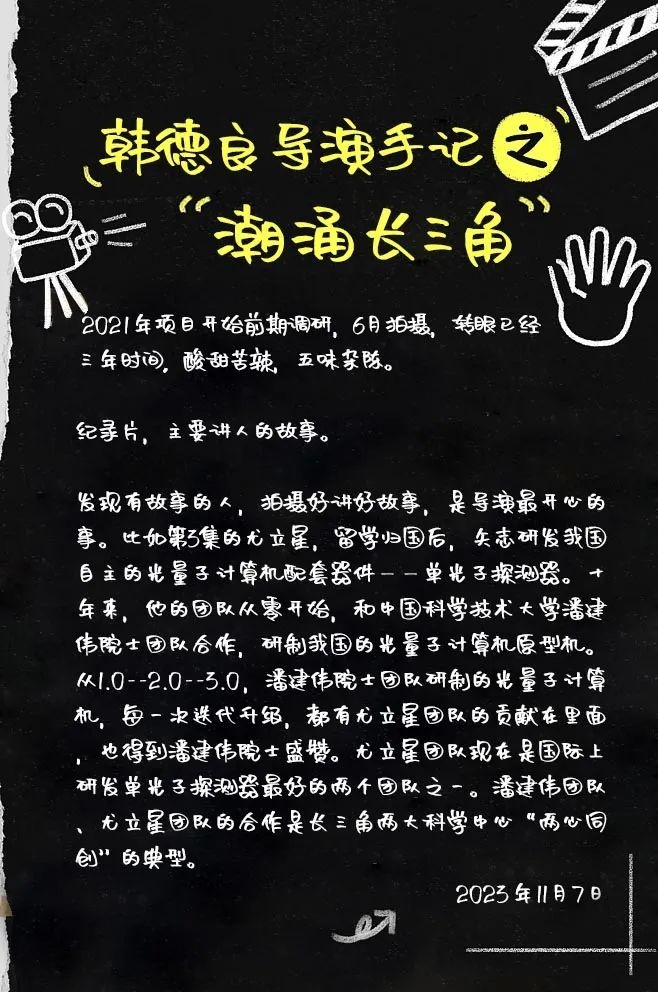 韩德良导演手记之
“潮涌长三角”
2021年项目开始前期调研，6月拍摄，转眼已经
三年时间，酸甜苦辣，五味杂陈。
纪录片，主要讲人的故事。
发现有故事的人，拍摄好讲好故事，是导演最开心的
事。比如第3集的尤立星，留学归国后，矢志研发我国
自主的光量子计算机配套器件--单光子探测器。十
年来，他的团队从零开始，和中国科学技术大学潘建
伟院士团队合作，研制我国的光量子计算机原型机。
从1.0--2.0--3.0，潘建伟院士团队研制的光量子计算
机，每一次迭代升级，都有尤立星团队的贡献在里面
，也得到潘建伟院士盛赞。尤立星团队现在是国际上
研发单光子探测器最好的两个团队之一。潘建伟团队
、尤立星团队的合作是长三角两大科学中心“两心同
创”的典型。
2023年11月7日